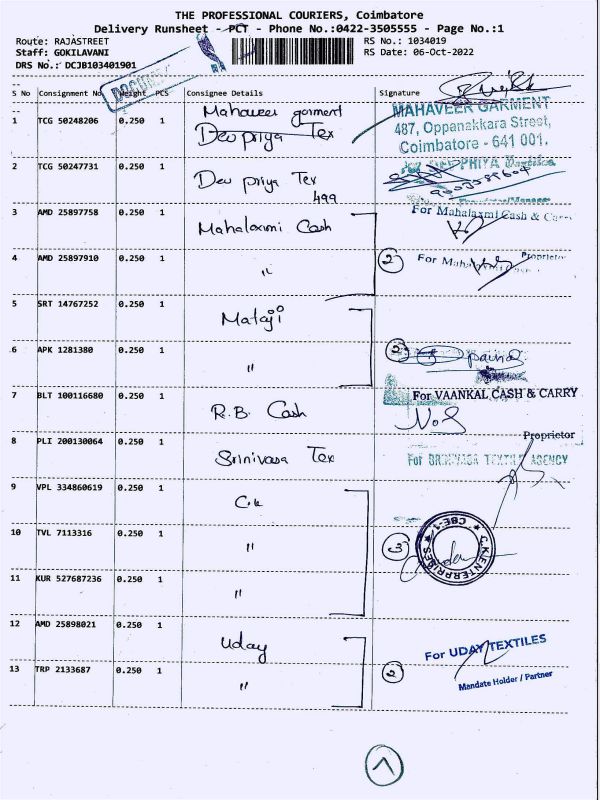 THE PROFESSIONAL COURIERS, Coimbatore
Delivery Runsheet - PCT - Phone No.:0422-3505555 - Page No.:1
Route: RAJASTREET RS No.: 1034019
Staff: GOKILAVANI RS Date: 06-Oct-2022
DRS No.: DCJB103401901
S No Consignment No Weight PCS Consignee Details Signature
1 TCG 50248206 0.250 1 Mahaveer garment
Dev priya Tex
MAHAVEER GARMENT
487, Oppanakkara Street,
Coimbatore - 641 001.
2 TCG 50247731 0.250 1 Dev priya Tex
499
3 AMD 25897758 0.250 1 Mahalaxmi Cash
For Mahalaxmi Cash & Carry
Proprietor
4 AMD 25897910 0.250 1 "
2 For Mahalaxmi Cash
5 SRT 14767252 0.250 1 Mataji
6 APK 1281380 0.250 1 "
2
7 BLT 100116680 0.250 1 R.B. Cash
For VAANKAL CASH & CARRY
Proprietor
8 PLI 200130064 0.250 1 Srinivasa Tex
For SRINIVASA TEXTILE AGENCY
9 VPL 334860619 0.250 1 C.k
10 TVL 7113316 0.250 1 "
3 C.K.ENTERPRISES CBE-1
11 KUR 527687236 0.250 1 "
12 AMD 25898021 0.250 1 Uday
For UDAY TEXTILES
Mandate Holder / Partner
13 TRP 2133687 0.250 1 "
2